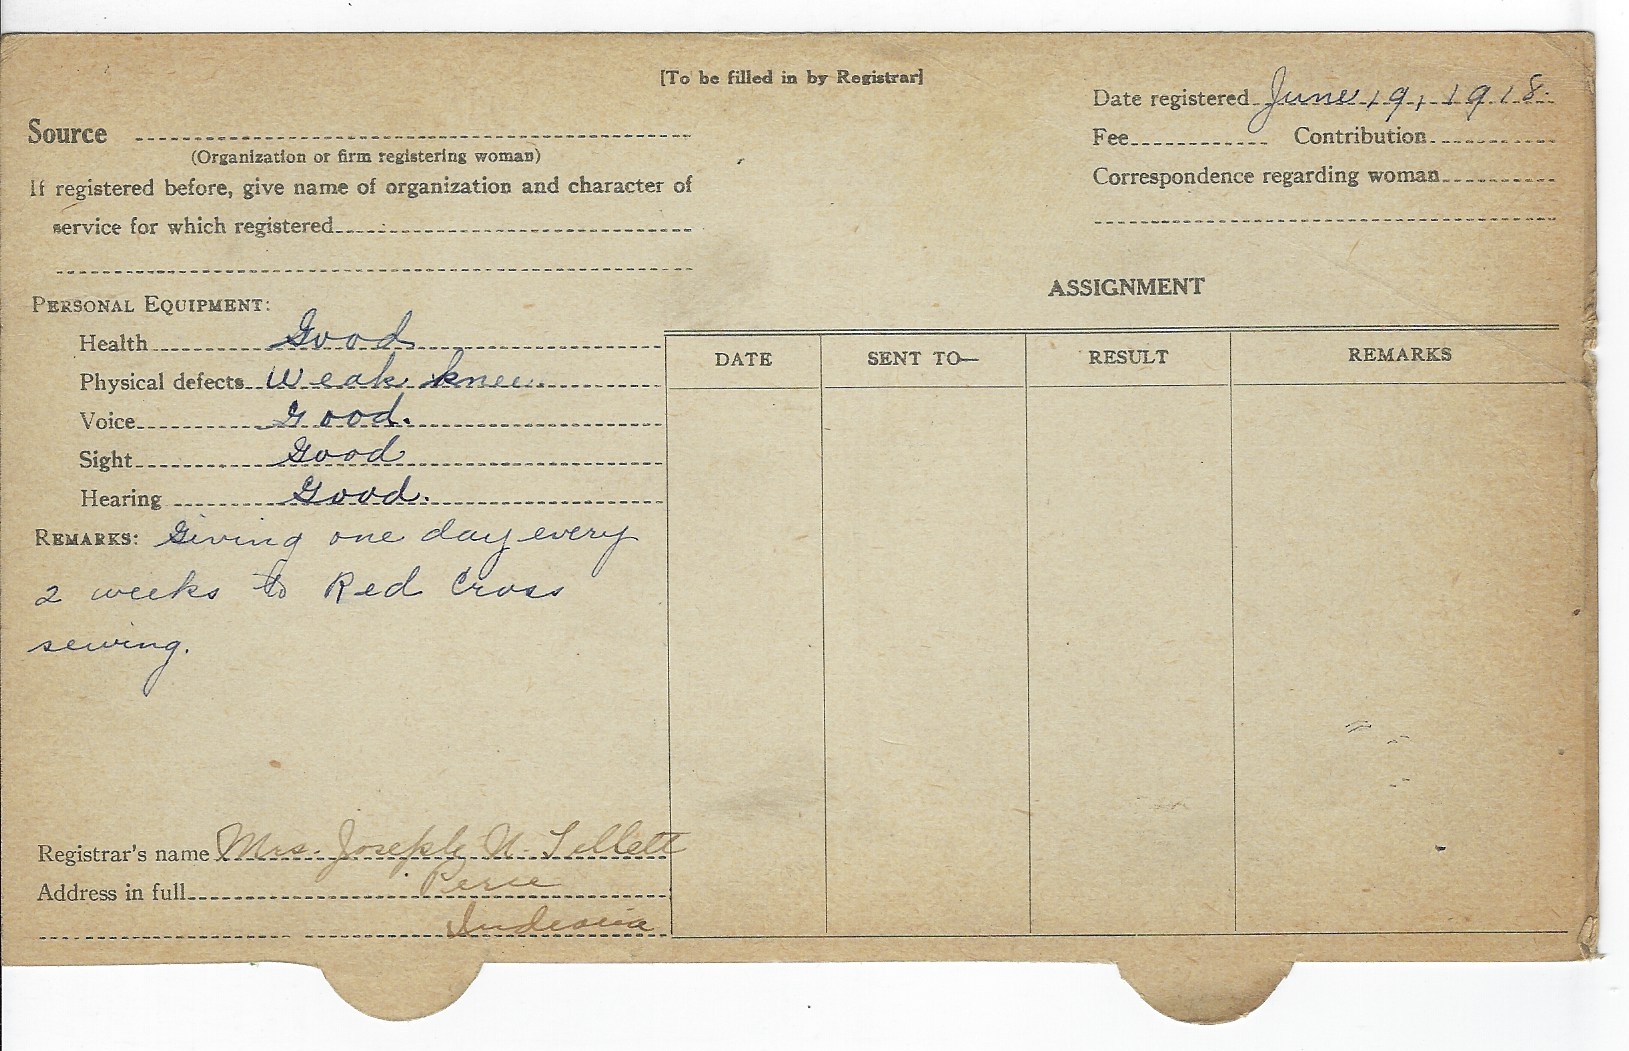 [To be filled in by Registrar]
Date registered June 19, 1918.
Source
(Organization or firm registering woman)
Fee Contribution
If registered before, give name of organization and character of
service for which registered
Correspondence regarding woman
PERSONAL EQUIPMENT:
Health Good
Physical defects Weak knee.
Voice Good.
Sight Good
Hearing Good.
REMARKS: Giving one day every
2 weeks to Red Cross
sewing.
ASSIGNMENT
DATE SENT TO— RESULT REMARKS
Registrar's name Mrs. Joseph N. Tillett
Address in full Peru
Indiana